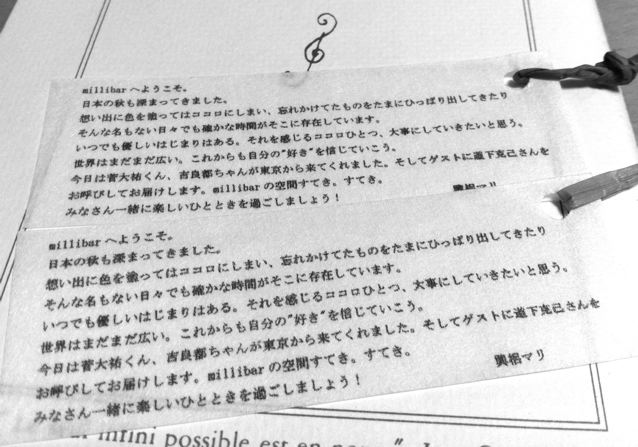 millibarへようこそ。
日本の秋も深まってきました。
想い出に色を塗ってはココロにしまい、忘れかけてたものをたまにひっぱり出してきたり
そんな名もない日々でも確かな時間がそこに存在しています。
いつでも優しいはじまりはある。それを感じるココロひとつ、大事にしていきたいと思う。
世界はまだまだ広い。これからも自分の"好き"を信じていこう。
今日は菅大祐くん、吉良都ちゃんが東京から来てくれました。そしてゲストに瀧下克己さんを
お呼びしてお届けします。millibarの空間すてき。すてき。
マリ
みなさん一緒に楽しいひとときを過ごしましょう！
millibarへようこそ。
日本の秋も深まってきました。
想い出に色を塗ってはココロにしまい、忘れかけてたものをたまにひっぱり出してきたり
そんな名もない日々でも確かな時間がそこに存在しています。
いつでも優しいはじまりはある。それを感じるココロひとつ、大事にしていきたいと思う。
世界はまだまだ広い。これからも自分の"好き"を信じていこう。
今日は菅大祐くん、吉良都ちゃんが東京から来てくれました。そしてゲストに瀧下克己さんを
お呼びしてお届けします。millibarの空間すてき。すてき。
マリ
みなさん一緒に楽しいひとときを過ごしましょう！
infini possible est en